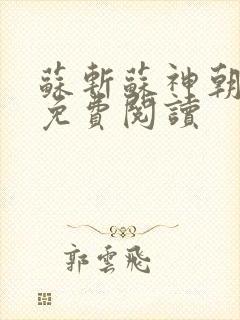 蘇斬蘇神朝
免費閱讀
郭雲飛